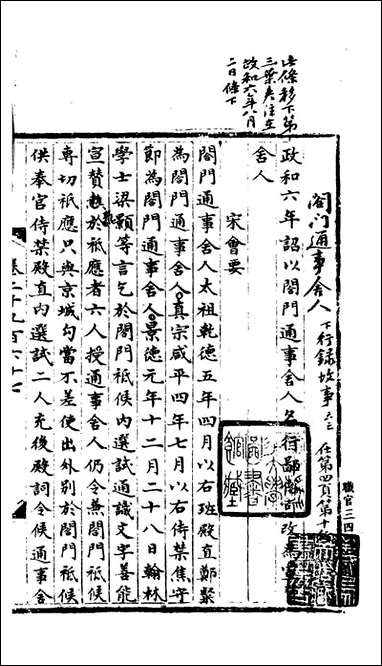 職官三四
閤门通事舍人
下行録故事
在第四頁第十
政和六年詔以閤門通事舍人
舍人
此條移下第
三葉
政和六年八月
二日條下
宋會要
閤門通事舍人太祖乾德五年四月以右班殿直鄭粲
為閤門通事舍人真宗咸平四年七月以右侍禁焦守
節為閤門通事舍人景德元年十二月二十八日翰林
學士梁顥等言乞於閤門祗候内選試通識文字善能
宣贊於祗應者六人授通事舍人仍令兼閤門祗候
專切祗應只與京城勾當不差使出外别於閤門祗候
供奉官侍禁殿直内選試二人充後殿詞令候通事舍